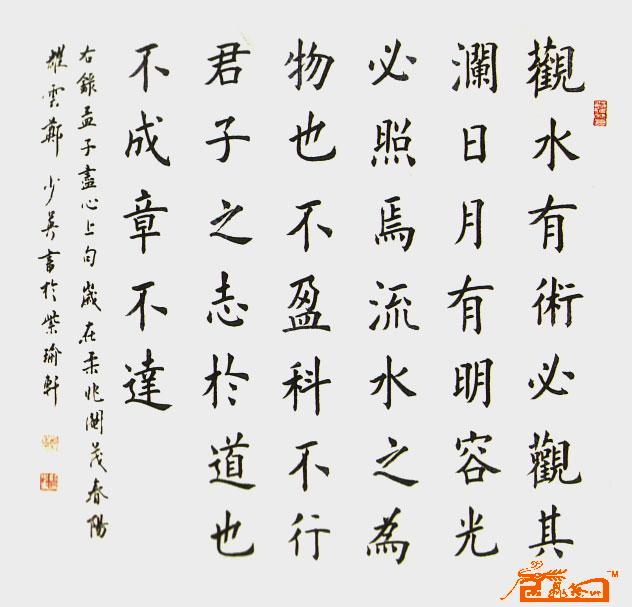 觀水有術必觀其
瀾日月有明容光
必照焉流水之為
物也不盈科不行
君子之志於道也
不成章不達
右錄孟子盡心上句歲在柔兆閹茂春陽
雄雲鄭少英書於紫瑜軒